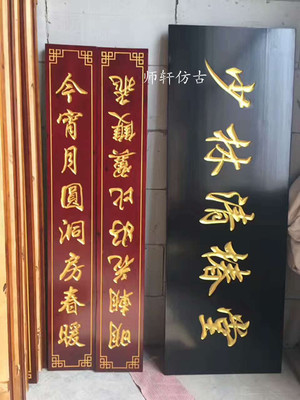 师轩仿古
今宵月圓洞房春暖
明朝花好比翼雙飛
少林清椿堂